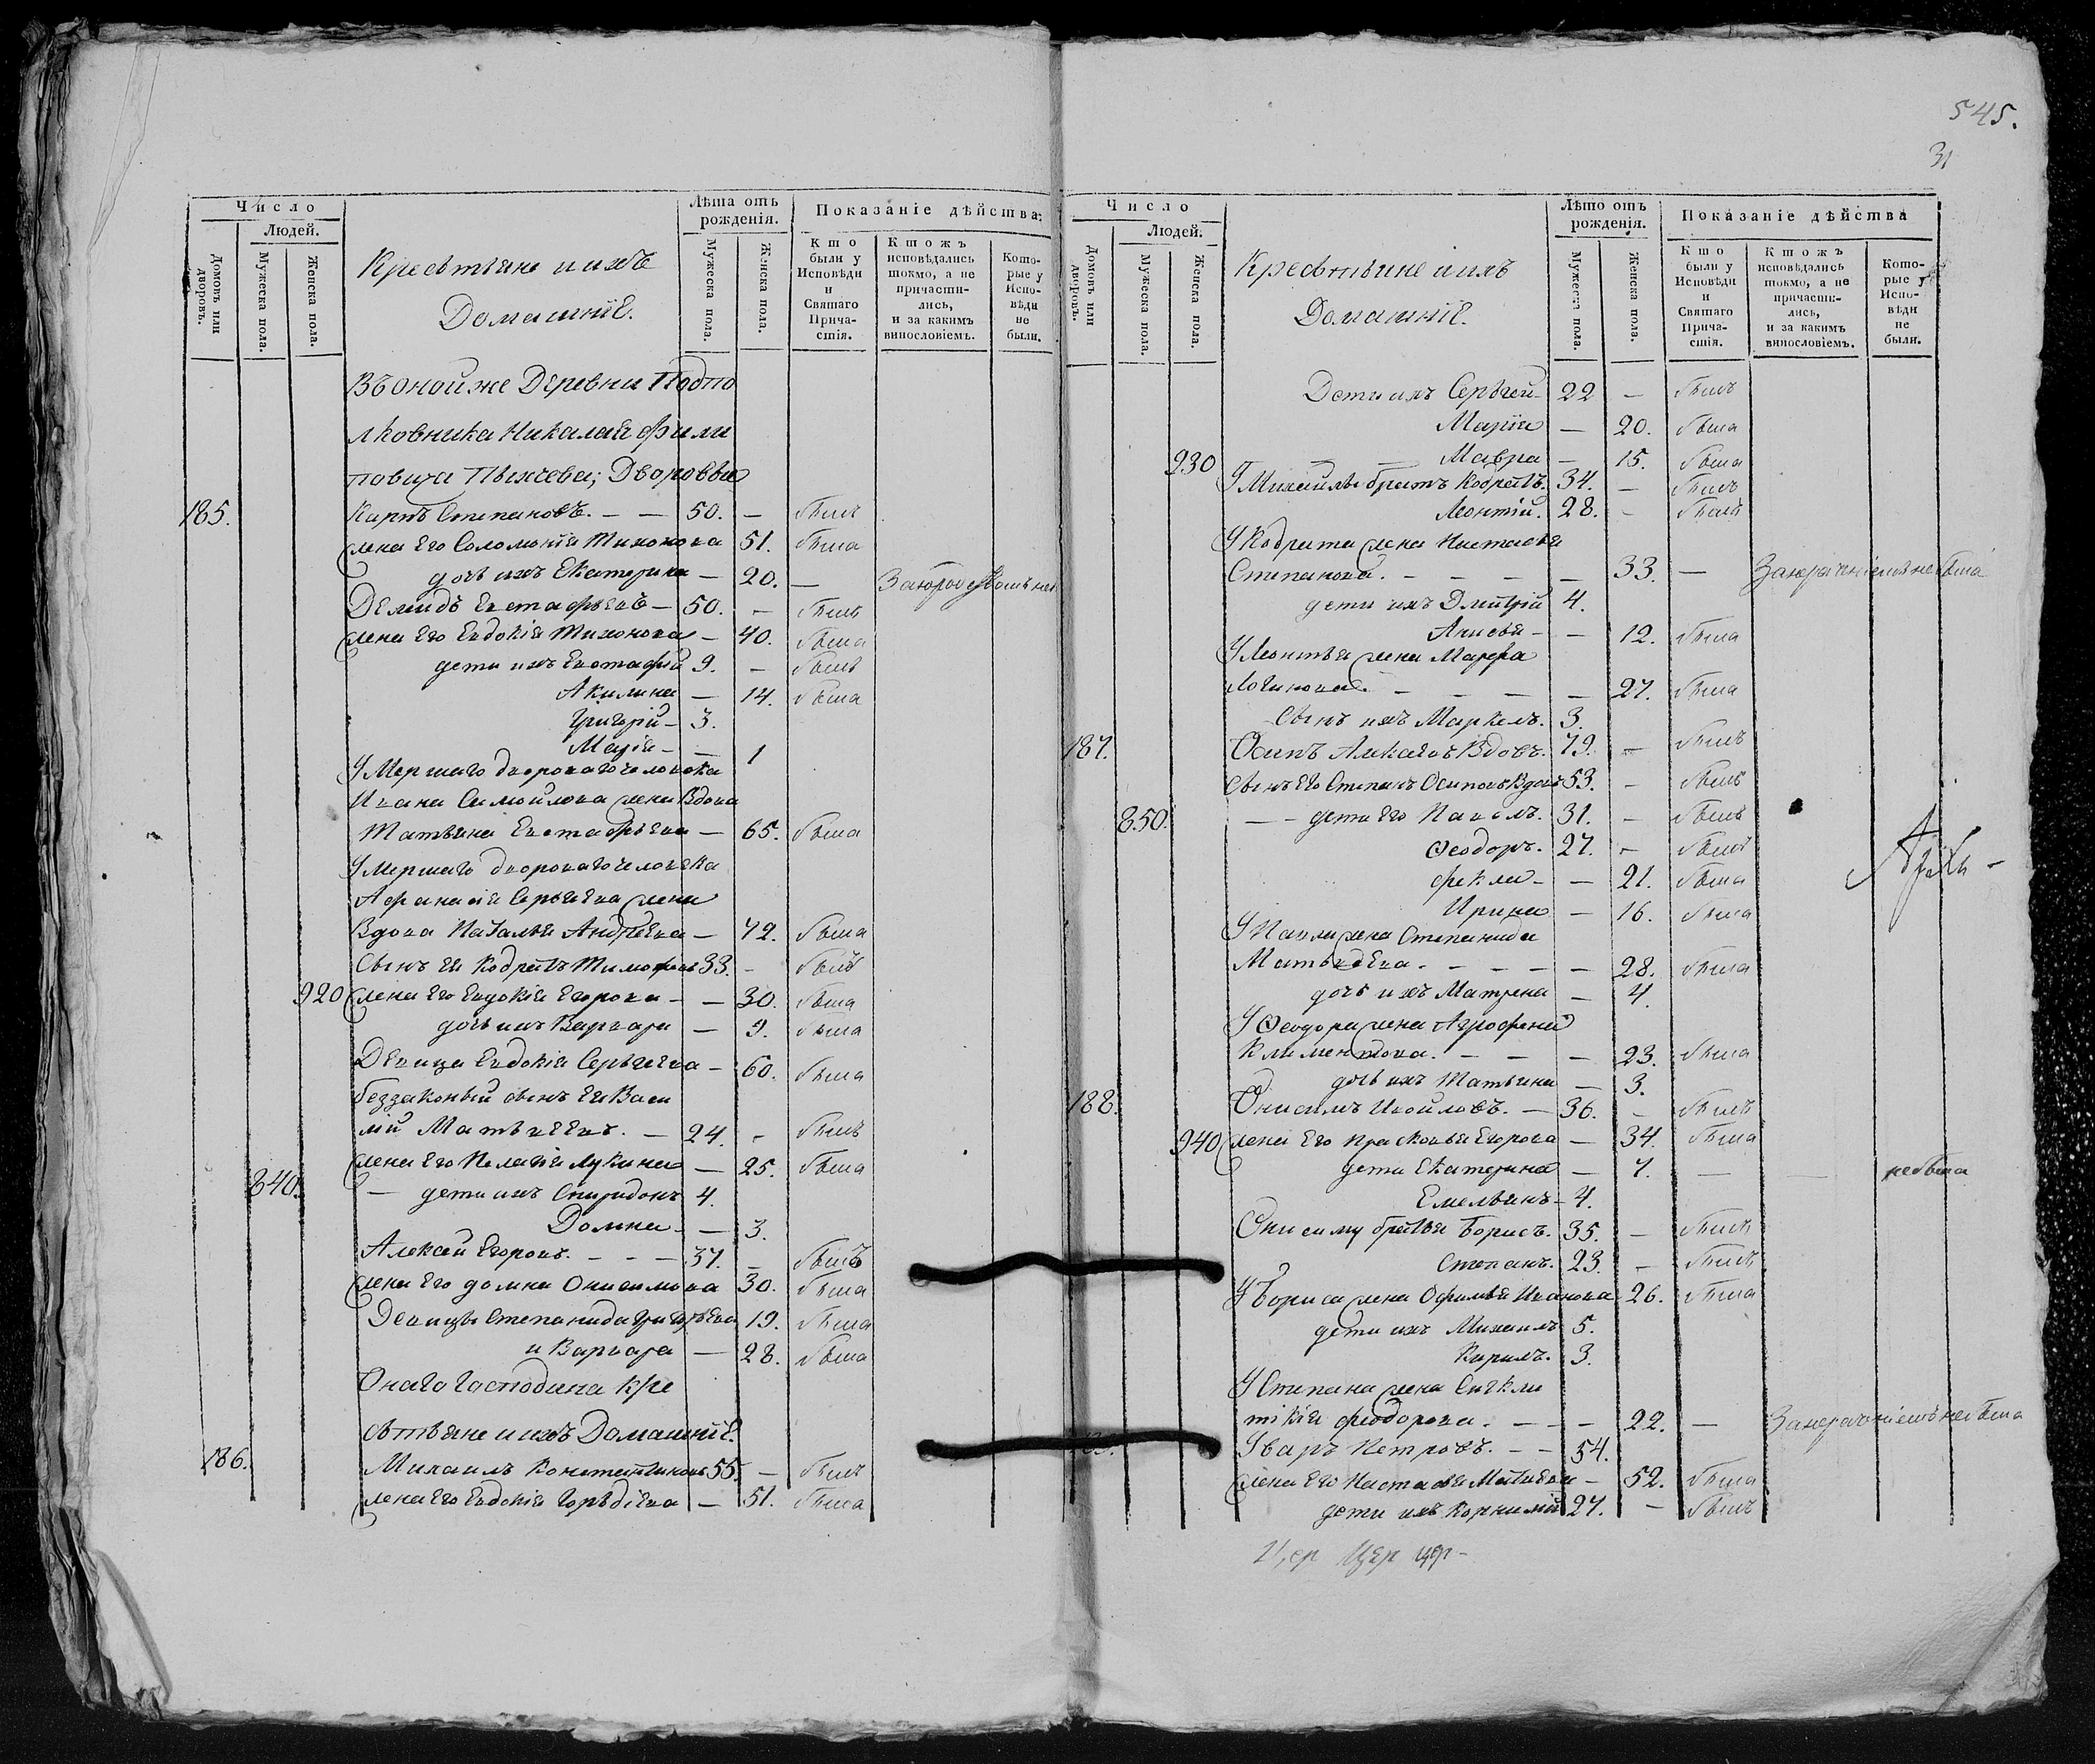 545.
31
Число
Людей.
Домовъ или дворовъ.
Мужеска пола.
Женска пола.
Крестьяне и ихъ
Домашніе.
Лѣта отъ рожденія.
Мужеска пола.
Женска пола.
Показаніе дѣйства:
Кто были у Исповѣди и Святаго Причастія.
Ктожъ исповѣдались токмо, а не причастились, и за какимъ винословіемъ.
Которые у Исповѣди не были.
Въ оной же Деревни Подпо
лковника Николая Фили
повича Пыхчева; Дворовые
185. Карпъ Степановъ. — — 50. — былъ
жена Его Соломонія Тихонова 51. была
дочь ихъ Екатерина — 20. —
Демидъ Евстафьевъ — 50. — былъ
жена Его Евдокія Тихонова — 40. была
дети ихъ Евстафій 9. — былъ
Акилина — 14. была
Григорій — 3.
Марія — — 1
Умершаго двороваго человека
Ивана Самойлова жена Вдова
Татьяна Евстафьева — 65. была
Умершаго двороваго человека
Афанасія Сергѣева жена
Вдова Наталья Андреева — 72. была
Сынъ Ея Кодратъ Тимофеевъ 33. — былъ
920 жена Его Евдокія Егорова — — 30. была
дочь ихъ Варвара — 9. была
Девица Евдокія Сергѣева — 60. была
беззаконый сынъ Ея Васи
лій Матвѣевъ. — 24. — былъ
жена Его Пелагія Лукина — 25. была
840. — дети ихъ Спиридонъ 4.
Домна — — 3.
Алексей Егоровъ. — — — 37. — былъ
жена Его домна Онисимова 30. была
Девицы Степанида Григорьева 19. была
и Варвара — 28. была
Онаго Господина кре
стьяне и ихъ Домашніе.
186. Михаилъ Константиновъ 55. — былъ
жена Его Евдокія Гордѣева — 51. была
Число
Людей.
Домовъ или дворовъ.
Мужеска пола.
Женска пола.
Крестьяне и ихъ
Домашніе.
Лѣто отъ рожденія.
Мужеска пола.
Женска пола.
Показаніе дѣйства
Кто были у Исповѣди и Святаго Причастія.
Ктожъ исповѣдались токмо, а не причастились, и за какимъ винословіемъ.
Которые у Исповѣди не были.
Дети ихъ Сергѣй — 22 — былъ
Марія — 20. была
930 — — Мавра — 15. была
У Михаилы братъ Кодратъ. 34. — былъ
Леонтій. 28. — былъ
У Кодрата жена Настасья
Степанова. — — — — — 33. —
дети ихъ Дмитрій 4.
Анисья — — 12. была
У Леонтья жена Марфа
Логинова. — — — — 27. была
Сынъ ихъ Маркелъ. 3.
187. Осипъ Вдовъ. 79. — былъ
Сынъ Его Степанъ Осиповъ Вдовъ 53. — былъ
850. — — дети Его Павелъ. 31. — былъ
Феодоръ. 27. — былъ
Фекла — — 21. была
Ирина — 16. была
У Павла жена Степанида
Матвѣева. — — — — — 28. была
дочь ихъ Матрена — 4.
У Феодора жена Агрофена
Климентова. — — — 23. была
дочь ихъ Татьяна — 3.
188. Онисимъ Ивойловъ. — 36. — былъ
940 жена Его Прасковья Егорова — 34. была
дети Екатерина — 7. — — не была
Емельянъ — 4.
Онисиму братья Борисъ. 35. — былъ
Степанъ. 23. — былъ
У Бориса жена Офимья Иванова 26. была
дети ихъ Михаилъ 5.
Кирилъ. 3.
У Степана жена Сигкли
тікія Феодорова. — — — 22. —
Уваръ Петровъ. — — 54.
жена Его Настасья Матвѣева — 52. была
дети ихъ Корнилій 27. — былъ
Цер Цер цер —